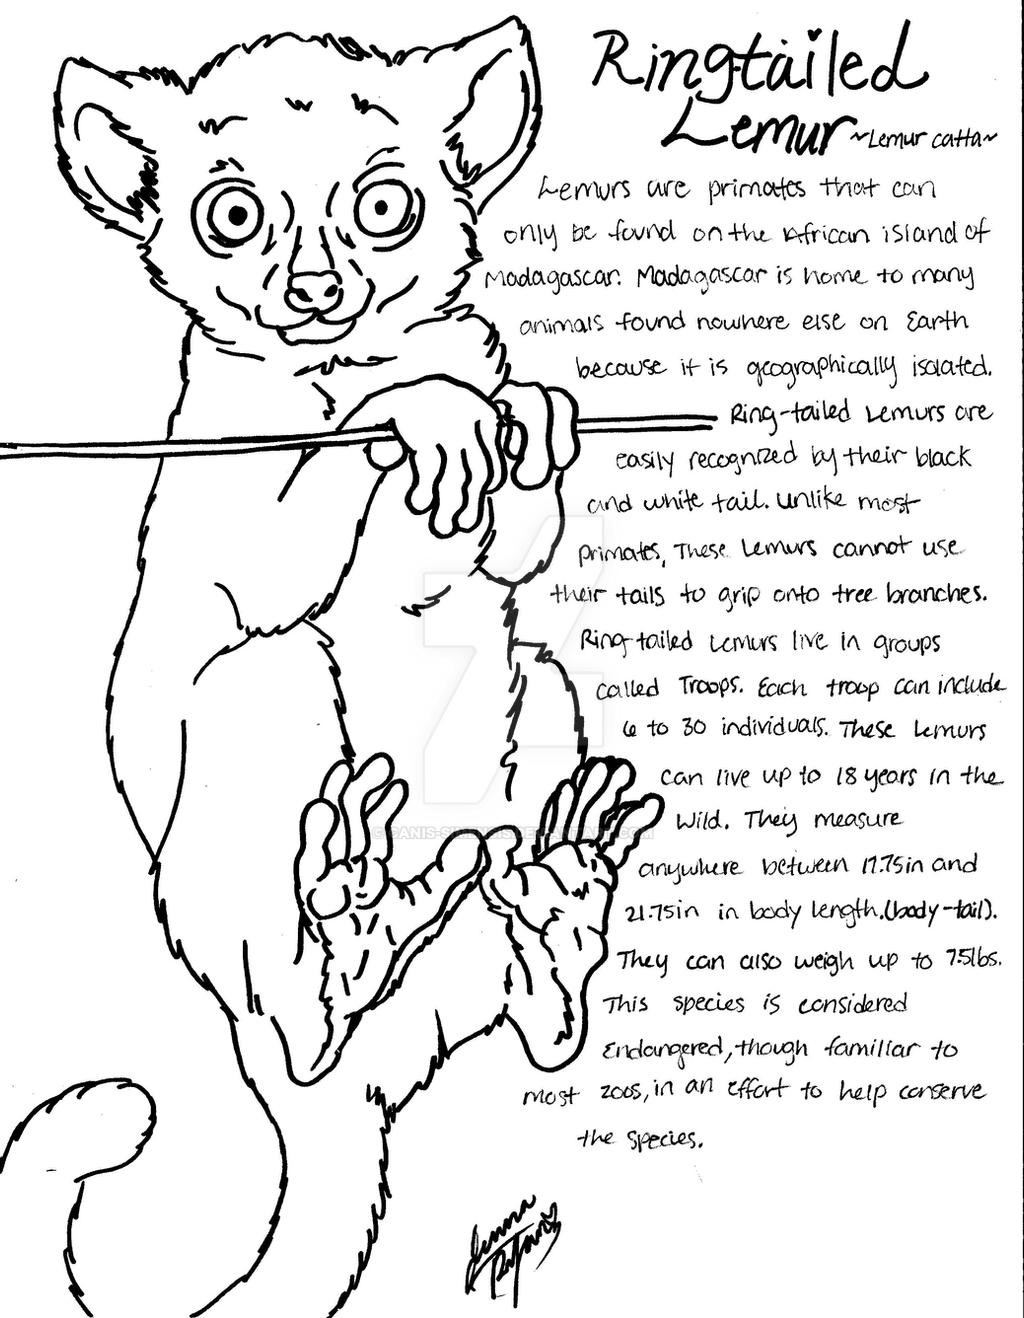 Ringtailed
Lemur ~Lemur catta~
Lemurs are primates that can
only be found on the African island of
Madagascar. Madagascar is home to many
animals found nowhere else on Earth
because it is geographically isolated.
Ring-tailed Lemurs are
easily recognized by their black
and white tail. Unlike most
primates, These Lemurs cannot use
their tails to grip onto tree branches.
Ring-tailed Lemurs live in groups
called Troops. Each troop can include
6 to 30 individuals. These Lemurs
can live up to 18 years in the
Wild. They measure
anywhere between 17.75in and
21.75in in body length.(body-tail).
They can also weigh up to 7.5lbs.
This species is considered
Endangered, though familiar to
most zoos, in an effort to help conserve
the species.